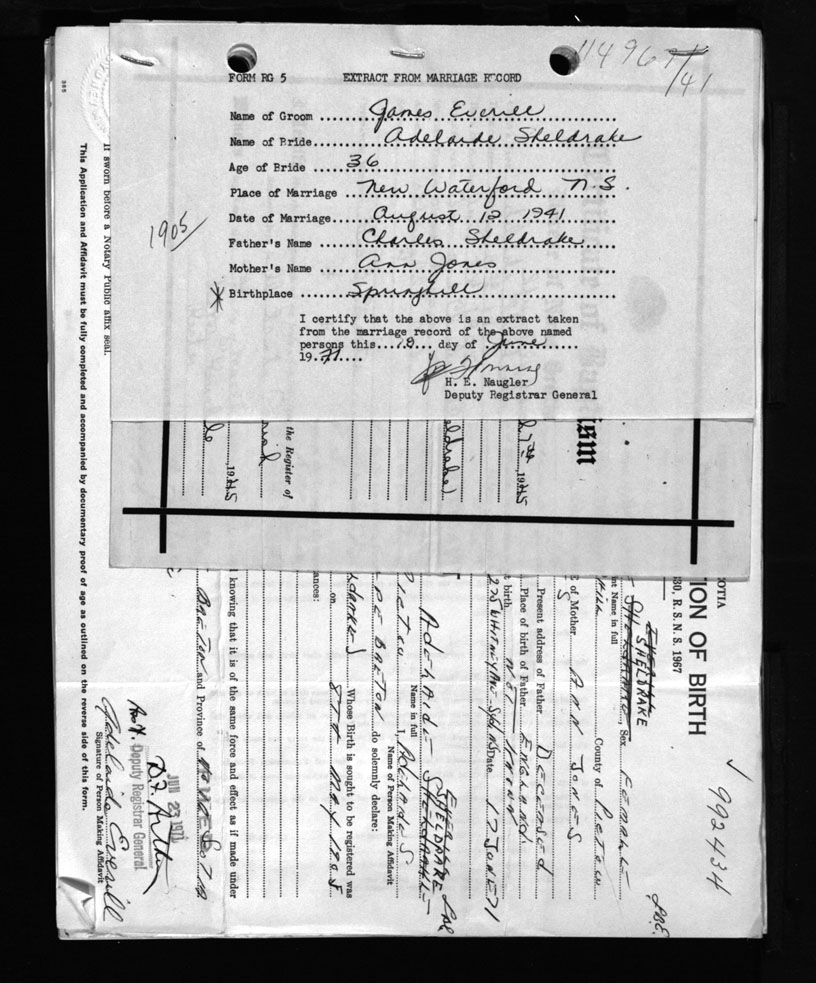 11496
41
FORM RG 5 EXTRACT FROM MARRIAGE RECORD
Name of Groom James Everill
Name of Bride Adelaide Sheldrake
Age of Bride 36
Place of Marriage New Waterford N.S.
Date of Marriage August 12 1941
1905
Father's Name Charles Sheldrake
Mother's Name Ann Jones
Birthplace Springhill
I certify that the above is an extract taken
from the marriage record of the above named
persons this day of June
1971
H. E. Naugler
Deputy Registrar General
If sworn before a Notary Public affix seal.
This Application and Affidavit must be fully completed and accompanied by documentary proof of age as outlined on the reverse side of this form.
the Register of
1945
ism
7th 1945
OTIA
ION OF BIRTH
30, R.S.N.S. 1967
992434
SHELDRAKE
nt Name in full
Sex Female
County of Pictou
of Mother Ann Jones
Present address of Father Deceased
Place of birth of Father England
t birth Not Known
225 Whitney Ave Syd NS Date 17 June 71
Adelaide SHELDRAKE
Name in full
Pictou I, Adelaide S
Name of Person Making Affidavit
Breton do solemnly declare:
Whose Birth is sought to be registered was
on 8th May 1905
ances:
knowing that it is of the same force and effect as if made under
Breton and Province of
JUN 23 1971
Deputy Registrar General
Adelaide Everill
Signature of Person Making Affidavit